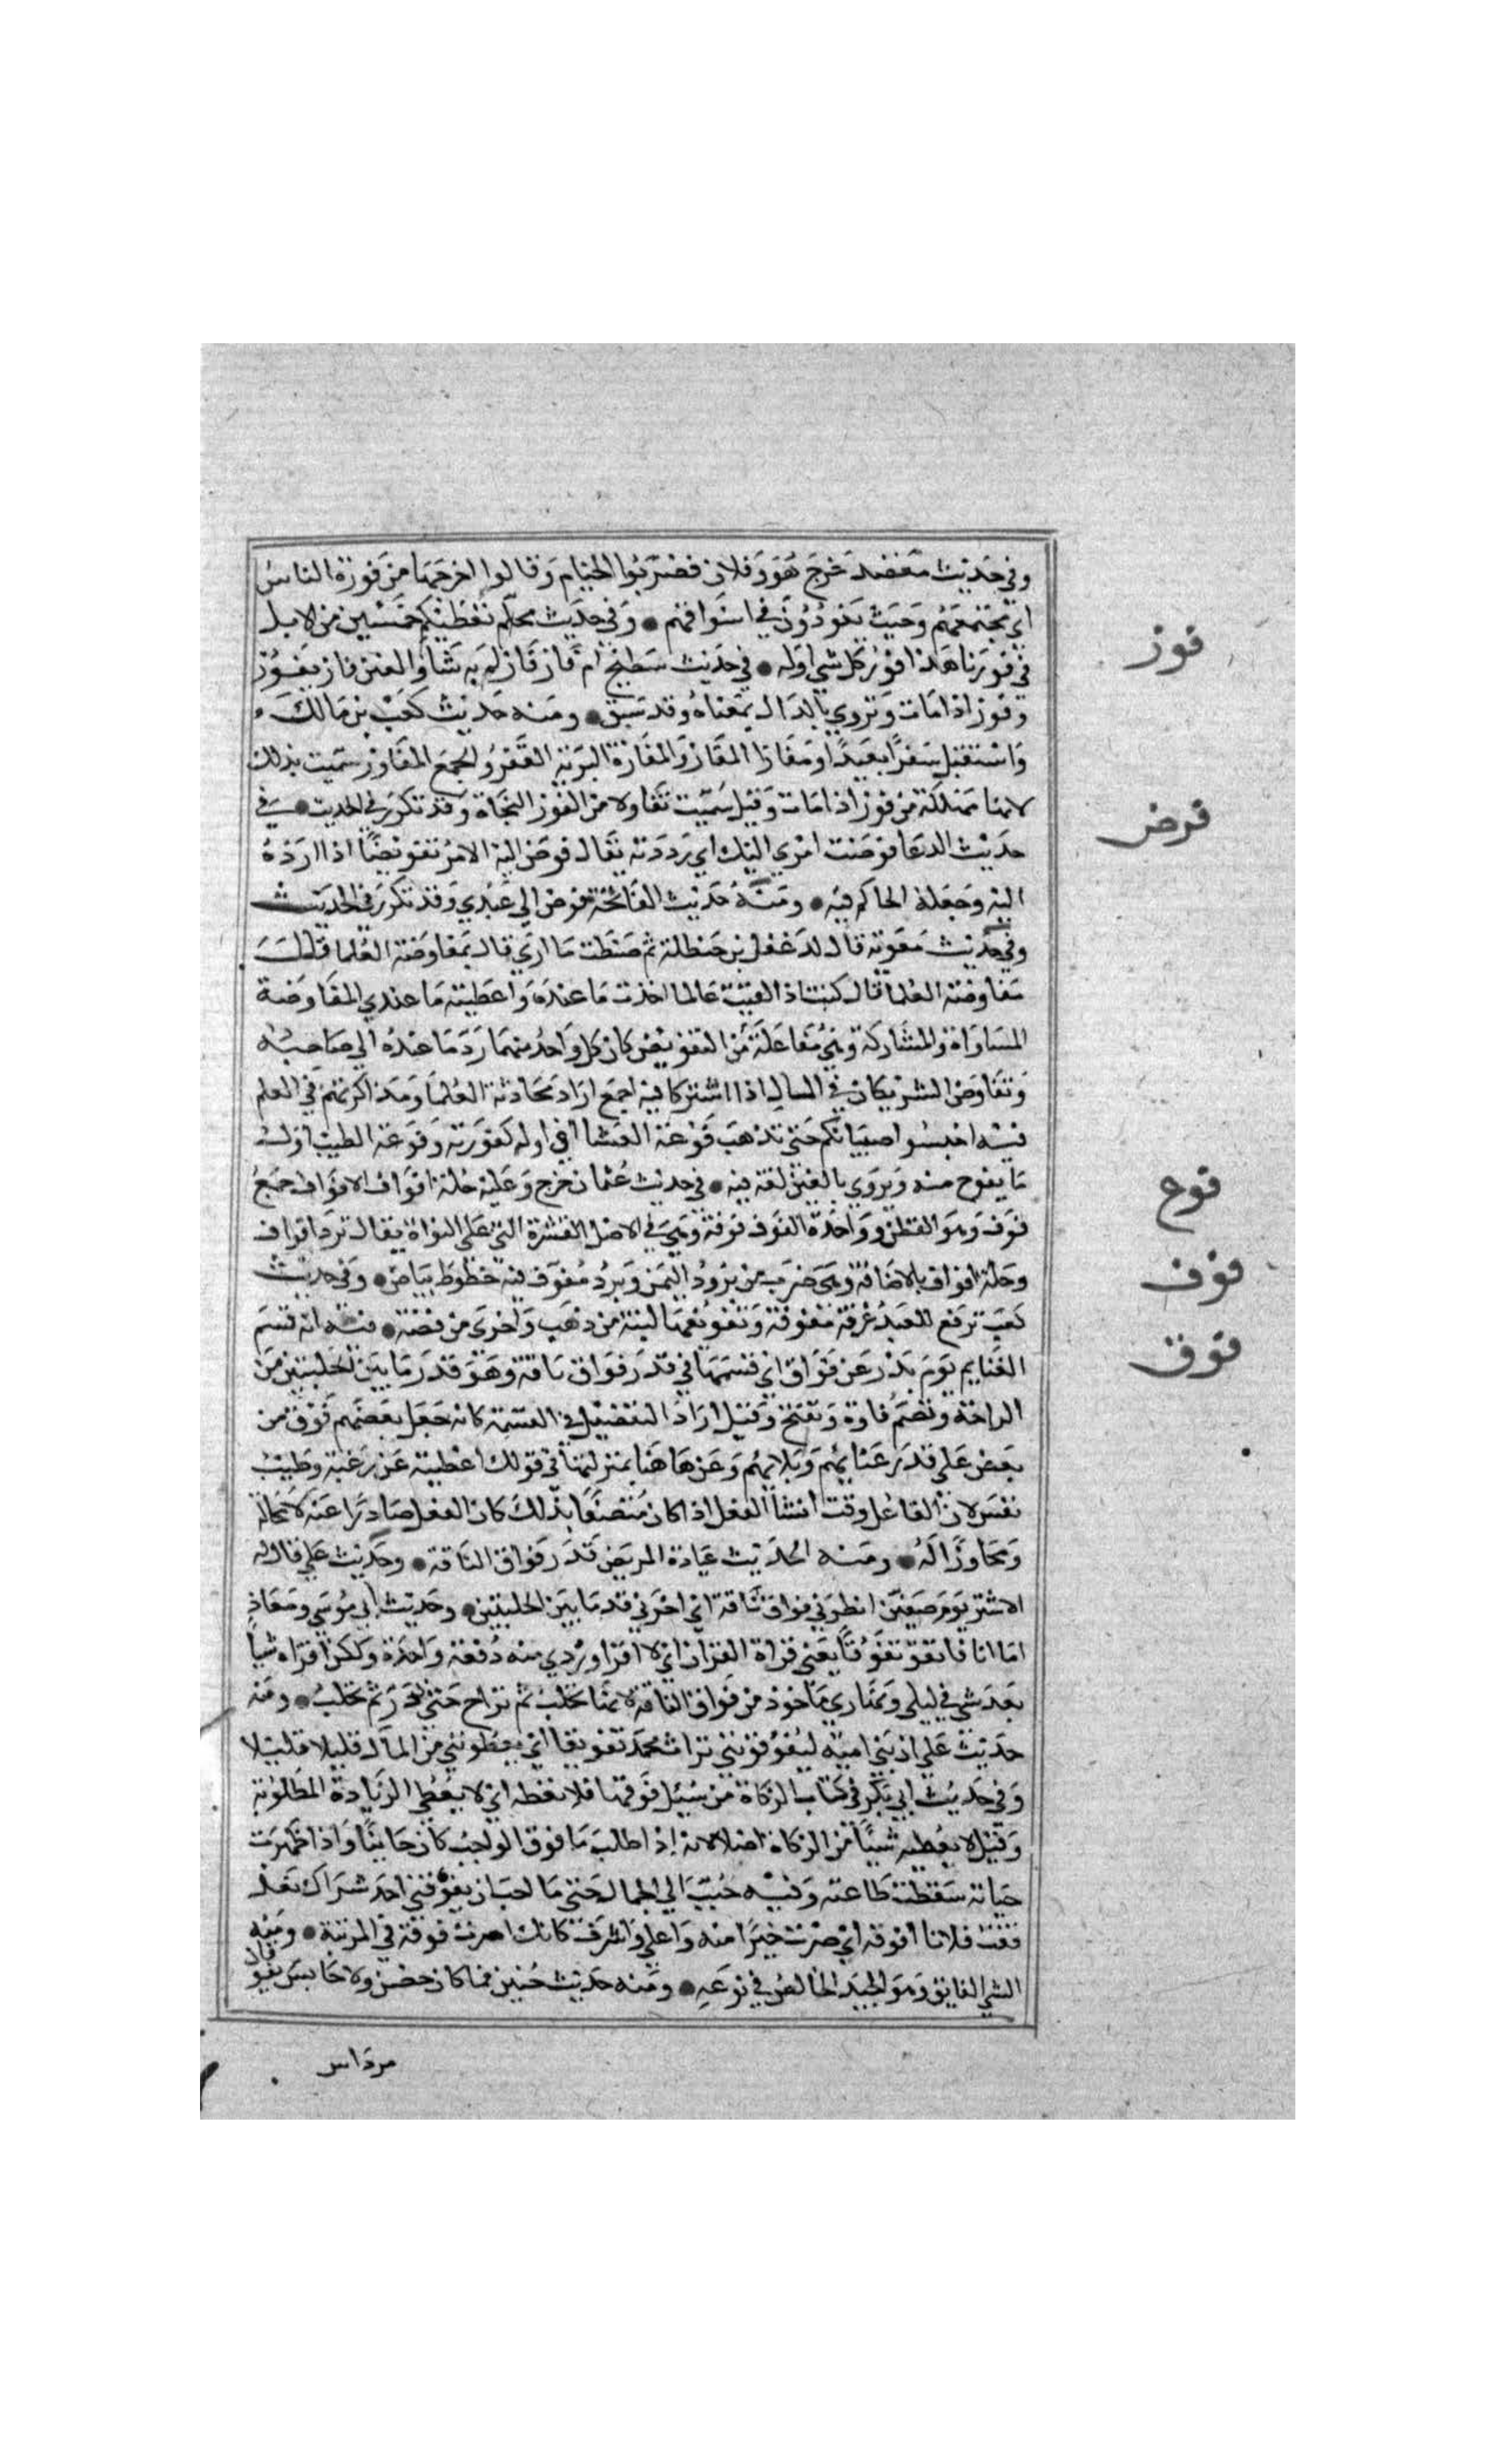 وفي حديث معضد خرج هو وفلان فضربوا الخيام وقالوا اخرجنا من فورة الناس
اي مجتمعهم وحيث يفورون في اسواقهم • وفي حديث محلم نعطيكم خمسين من الابل
في فورنا هذا فور كل شي اوله • في حديث سطيح ام فاز فازلم به شأو العنن فاز يفوز
فوز
وفوز اذا مات وتروي بالدال بمعناه وقد سبق • ومنه حديث كعب بن مالك
واستقبل سفرا بعيدا ومفازا المفاز والمفازة البرية القفر والجمع المفاوز سميت بذلك
لانها مهلكة من فوز اذا مات وقيل سميت تفاولا من الفوز النجاة وقد تكرر في الحديث • في
فوض
حديث الدعا فوضت امري اليك اي رددته يقال فوض اليه الامر تفويضا اذا رده
اليه وجعله الحاكم فيه • ومنه حديث الفاتحة فوض الي عبدي وقد تكرر في الحديث
وفي حديث معوية قال لدغفل بن حنظلة ثم ضبطت ما اري قال بمفاوضة العلما قال
مفاوضة العلما قال كنت اذا لقيت عالما اخذت ما عنده واعطيته ما عندي المفاوضة
المساواة والمشاركة وهي مفاعلة من التفويض كان كل واحد منهما رد ما عنده الي صاحبه
وتفاوض الشريكان في المال اذا اشتركا فيه اجمع اراد محادثة العلما ومذاكرتهم في العلم
فيه احبسوا صبيانكم حتى تذهب فوعة العشا اي اوله كفورته وفوعة الطيب اول
فوع
ما يفوح منه ويروي بالغين لغة فيه • في حديث عثمان خرج وعليه حلة افواف الافواف جمع
فوف
فوف وهو القطن وواحدة الفوف فوفة وهي في الاصل القشرة التي علي النواة يقال برد افواف
وحلة افواف بالاضافة وهي ضرب من برود اليمن وبرد مفوف فيه خطوط بياض • وفي حديث
كعب ترفع للعبد غرفة مفوفة وتفويفها لبنة من ذهب واخري من فضة • فيه انه قسم
فوق
الغنايم يوم بدر عن فواق اي قسمها في قدر فواق ناقة وهو قدر ما بين الحلبتين من
الراحة وتضم فاوه وتفتح وقيل اراد التفضيل في القسمة كانه جعل بعضهم فوق من
بعض علي قدر غنايهم وبلايهم وعن هاهنا بمنزلتها في قولك اعطيته عن رغبة وطيب
نفس لان الفاعل وقت انشا الفعل اذا كان متصفا بذلك كان الفعل صادرا عنه لا محالة
ومجاوزا له • ومنه الحديث عيادة المريض قدر فواق الناقة • وحديث علي قال له
الاشتر يوم صفين انظرني فواق ناقة اي اخرني قدر ما بين الحلبتين • وحديث ابي موسي ومعاذ
اما انا فاتفوقه تفوقا يعني قراة القران اي لا اقرا وردي منه دفعة واحدة ولكن اقراه شيا
بعد شي في ليلي ونهاري ماخوذ من فواق الناقة لانها تحلب ثم تراح حتى تدر ثم تحلب • ومنه
حديث علي ان بني امية ليفوقونني تراث محمد تفويقا اي يعطونني من المال قليلا قليلا
وفي حديث ابي بكر في كتاب الزكاة من سيل فوقها فلا يعطه اي لا يعطي الزيادة المطلوبة
وقيل لا يعطيه شيئا من الزكاة اصلا لانه اذا طلب ما فوق الواجب كان خاينا واذا ظهرت
خيانته سقطت طاعته وفيه حبب الي الجمال حتى ما احب ان يفوقني احد بشراك نعل
فقت فلانا افوقه اي صرت خيرا منه واعلي واشرف كانك صرت فوقه في المرتبة • ومنه
الشي الفايق وهو الجيد الخالص في نوعه • ومنه حديث حنين فما كان حصن ولا حابس يفوقان
مرداس